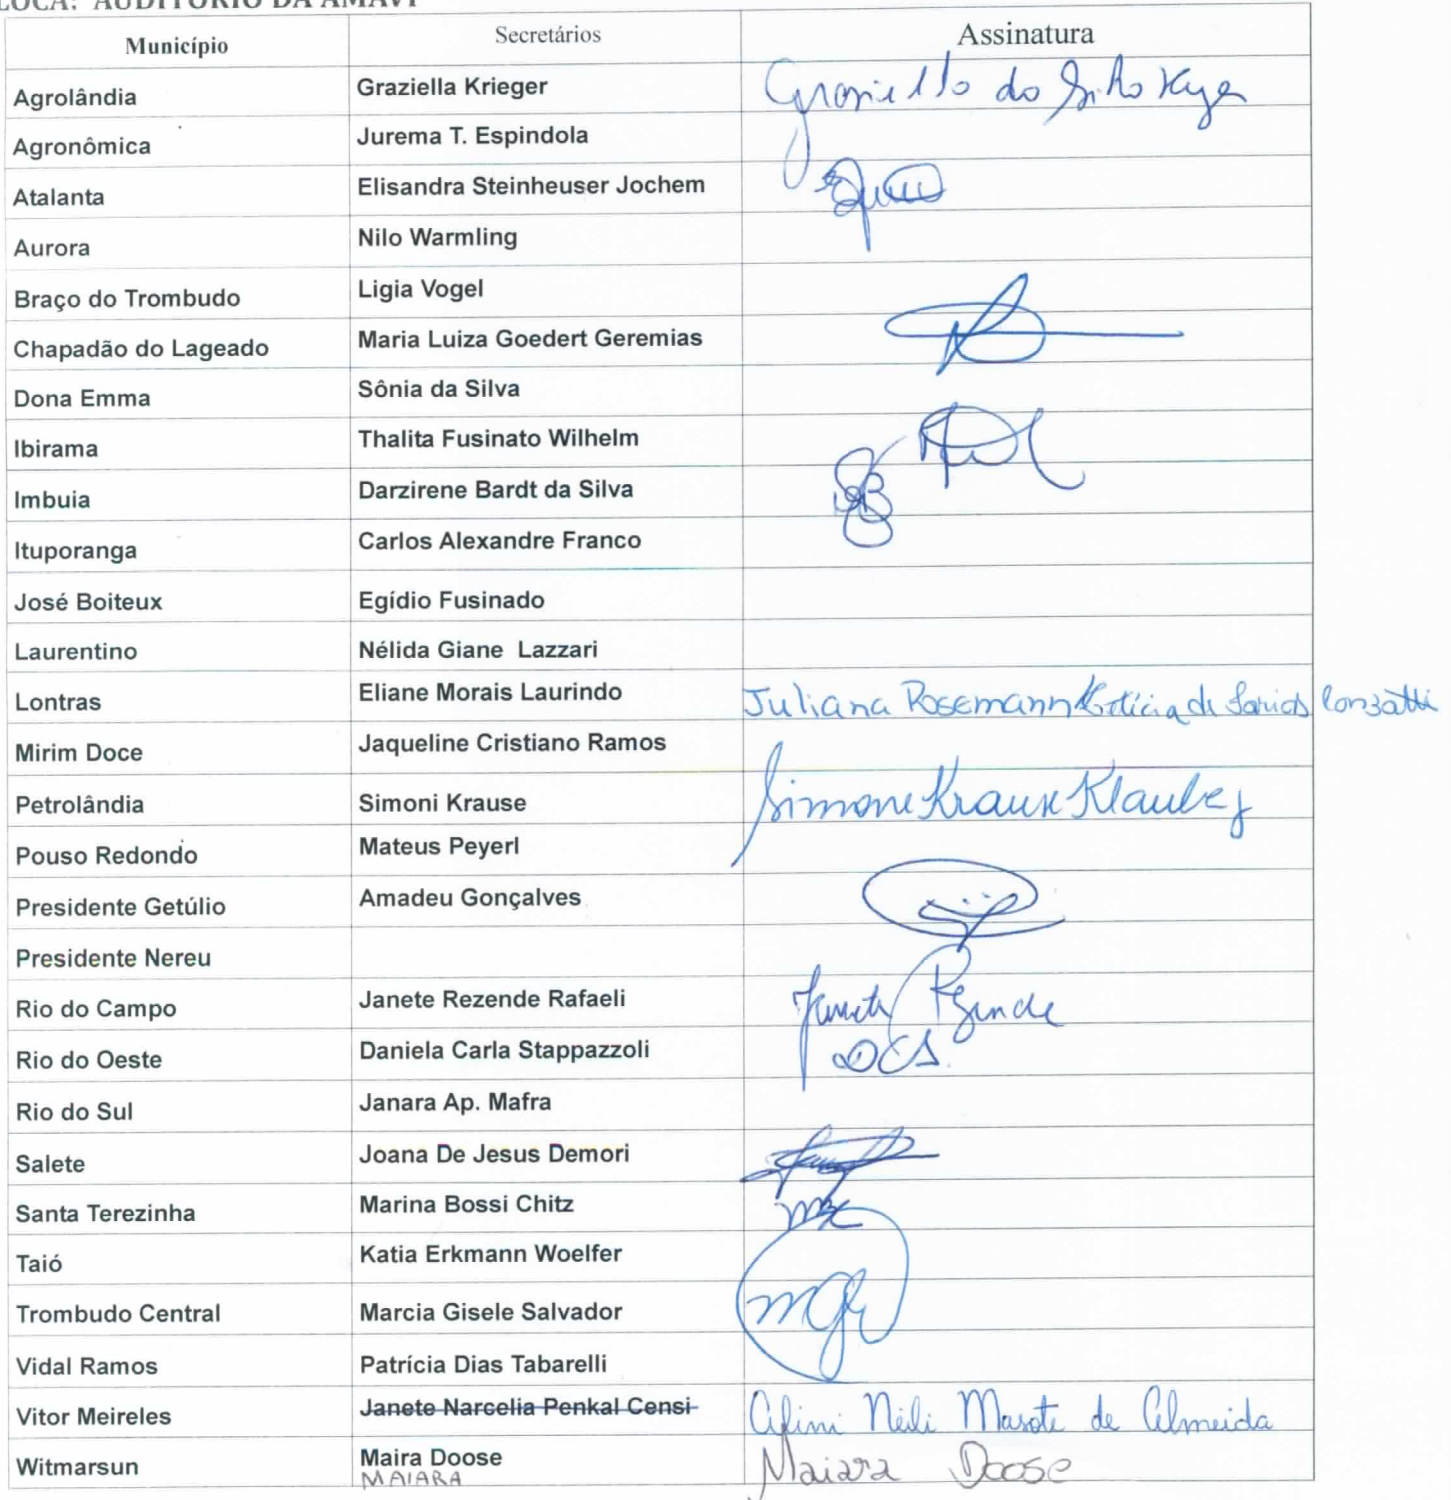 LOCA: AUDITÓRIO DA AMAVI
Município Secretários Assinatura
Agrolândia Graziella Krieger
Agronômica Jurema T. Espindola
Atalanta Elisandra Steinheuser Jochem
Aurora Nilo Warmling
Braço do Trombudo Ligia Vogel
Chapadão do Lageado Maria Luiza Goedert Geremias
Dona Emma Sônia da Silva
Ibirama Thalita Fusinato Wilhelm
Imbuia Darzirene Bardt da Silva
Ituporanga Carlos Alexandre Franco
José Boiteux Egídio Fusinado
Laurentino Nélida Giane Lazzari
Lontras Eliane Morais Laurindo Juliana Rosemann Letícia de
Mirim Doce Jaqueline Cristiano Ramos
Petrolândia Simoni Krause Simone Krause Klauberg
Pouso Redondo Mateus Peyerl
Presidente Getúlio Amadeu Gonçalves
Presidente Nereu
Rio do Campo Janete Rezende Rafaeli Janete Rezende
Rio do Oeste Daniela Carla Stappazzoli DCS.
Rio do Sul Janara Ap. Mafra
Salete Joana De Jesus Demori
Santa Terezinha Marina Bossi Chitz
Taió Katia Erkmann Woelfer
Trombudo Central Marcia Gisele Salvador
Vidal Ramos Patrícia Dias Tabarelli
Vitor Meireles Janete Narcelia Penkal Censi Masote de Almeida
Witmarsun Maira Doose Maiara Doose
MAIARA